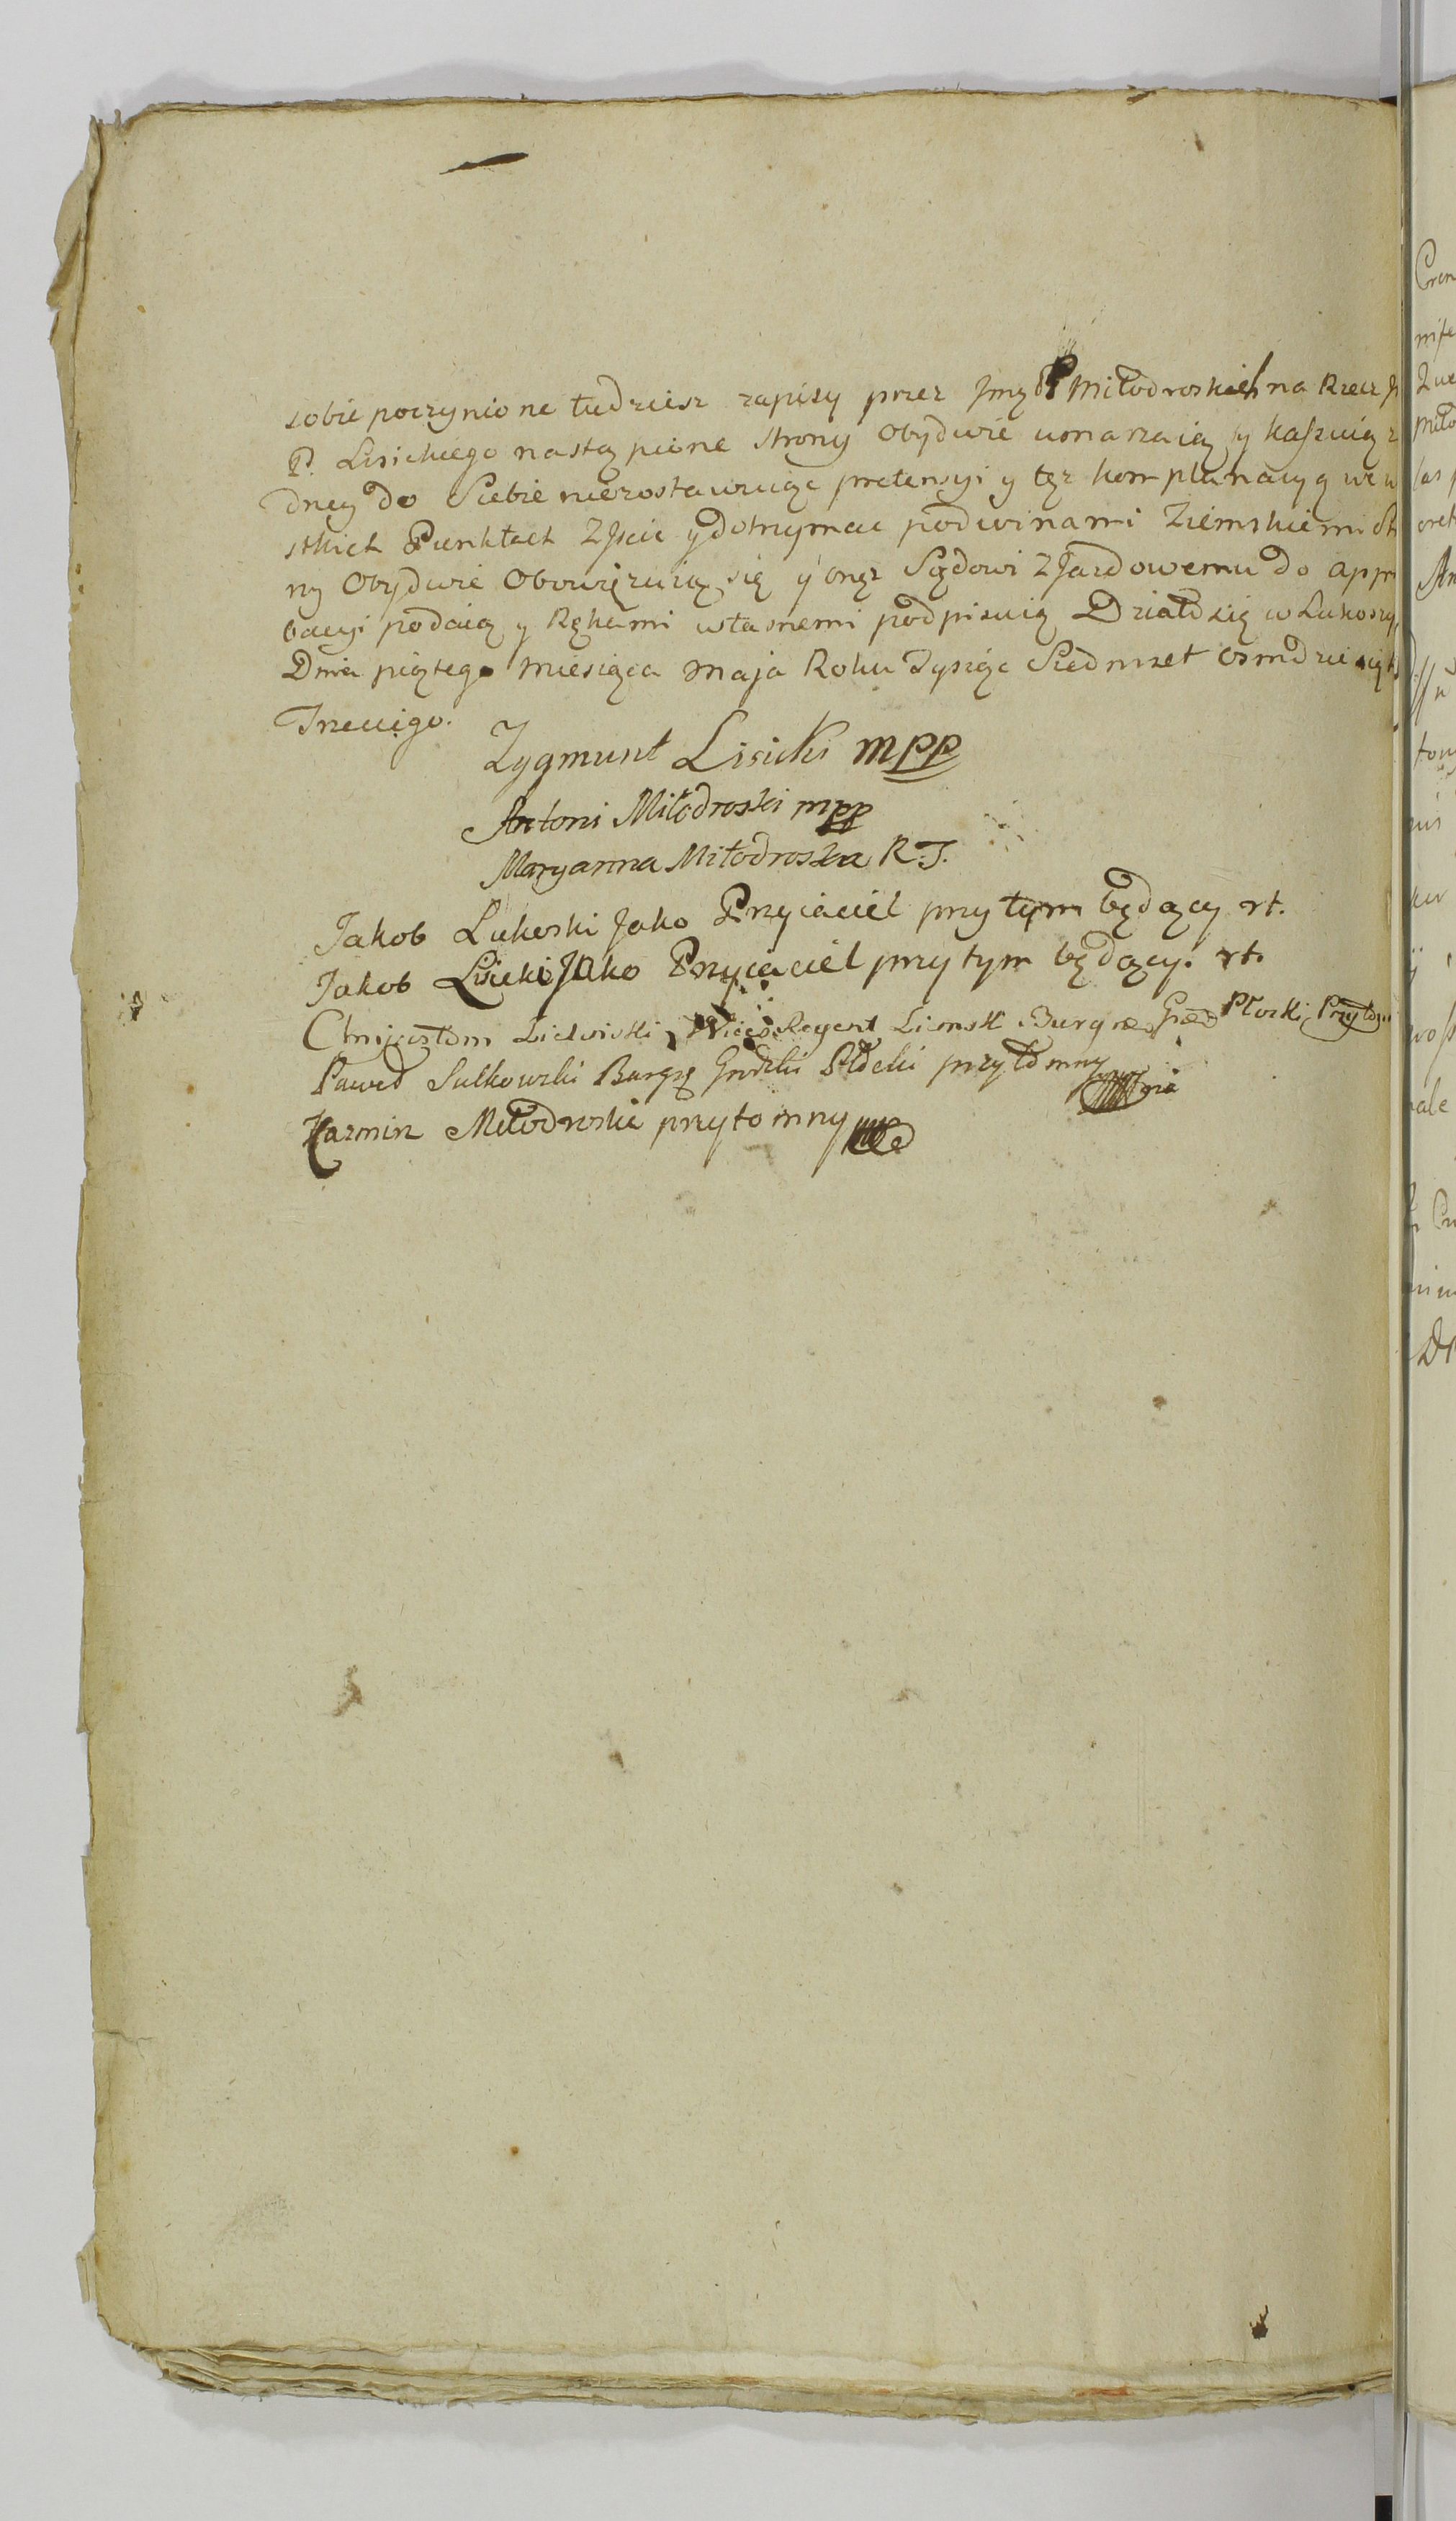 sobie poczynione tudziesz zapisy przez Jmę PP Miłodroskich na Rzecz J
P. Lisickiego nastąpione strony Obydwie umarzaią y kaszuią z
dney do Siebie niezostawuiąc pretensyi y tęz komplanacyą we w
stkich Punktach Zjscic y dotrzymac pod winami Ziemskiemi St
ny Obydwie Obowięzuią się y onęz Sądowi Zjazdowemu do appro
bacyi podaią y Rękami własnemi podpisuią Działo się w Lukoszy
Dnia piątego Miesiąca Maja Roku Tysiąc Siedmset osmdziesiąt
Trzeciego.
Zygmunt Lisicki mpp
Antoni Miłodroski mpp
Maryanna Miłodroska R.T.
Jakob Lukoski Jako Przyiaciel przy tym będący rt.
Jakob Lisicki Jako Przyiaciel przy tym będący. rt.
Zielinski Vice Regent Ziemsk Burg Grod Płocki Przyto
Paweł Sulkowski Burgrę Grodzki Płocki przytomny
Kazmirz Miłodroski przytomny